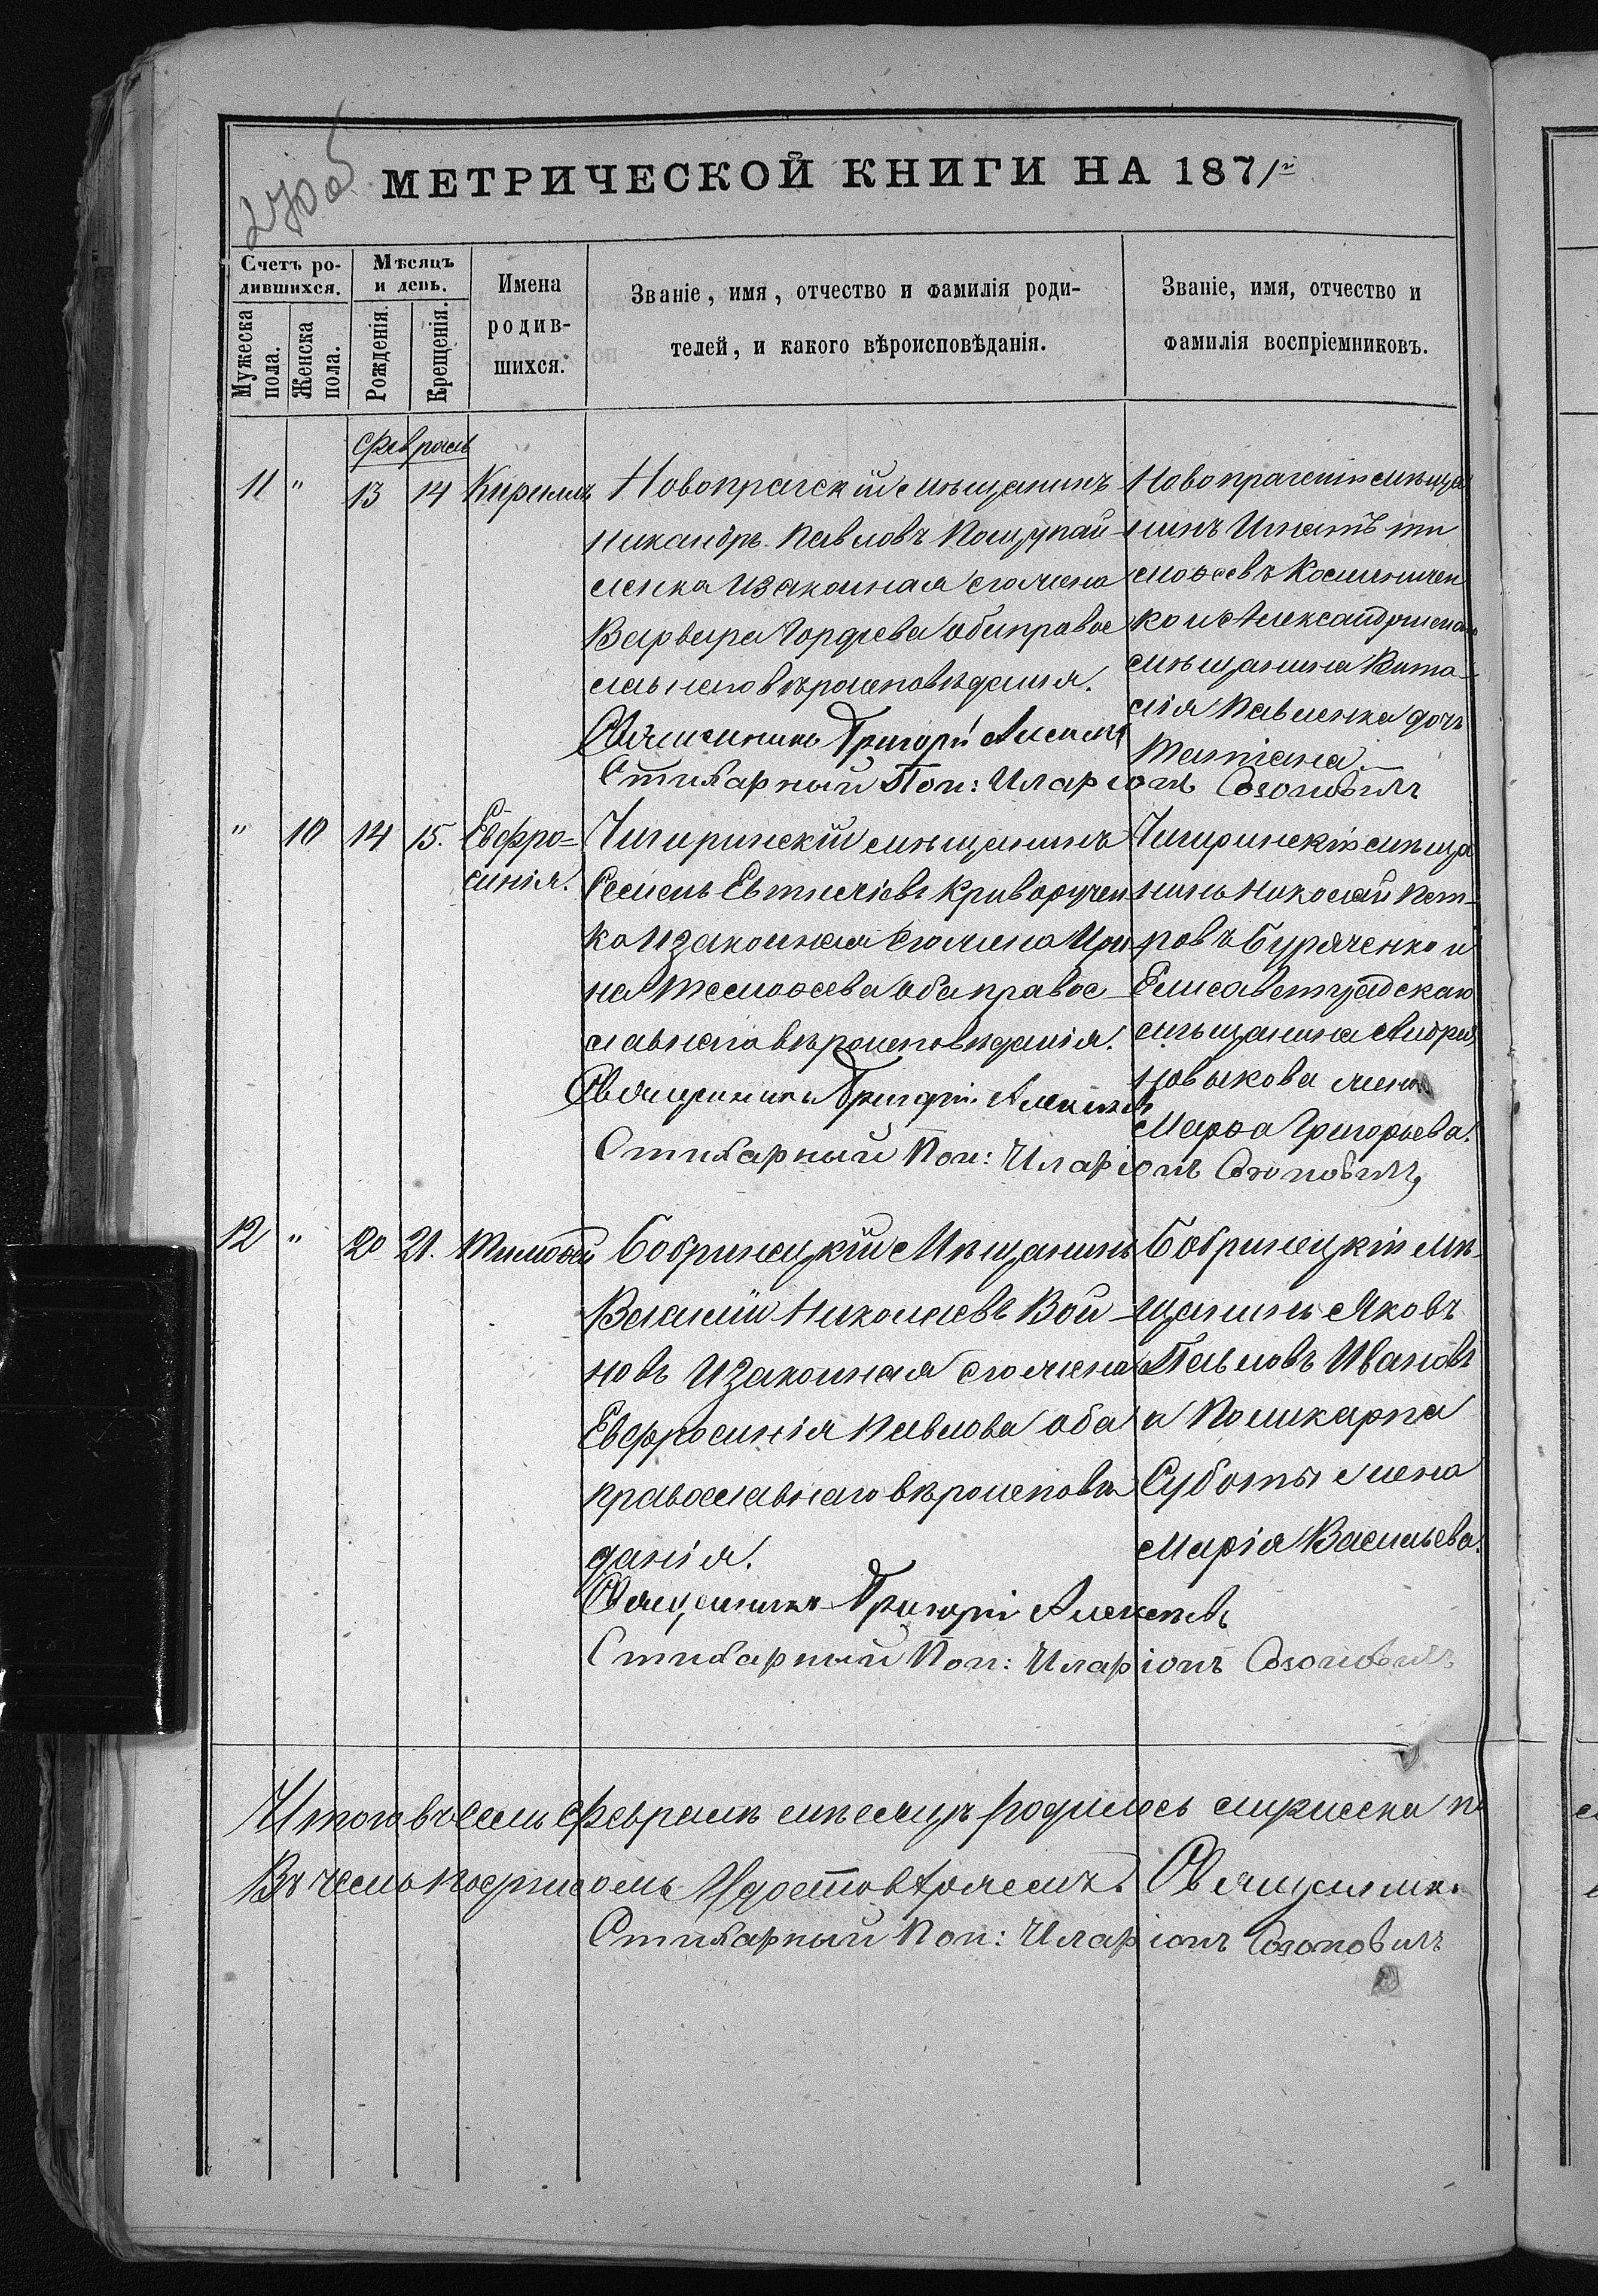 МЕТРИЧЕСКОЙ КНИГИ НА 1871 г
270 об
Счетъ ро-
дившихся.
Мѣсяцъ
и день.
Мужеска
пола.
Женска
пола.
Рожденія.
Крещенія.
Имена
родив-
шихся.
Званіе, имя, отчество и фамилія роди-
телей, и какого вѣроисповѣданія.
Званіе, имя, отчество и
фамилія воспріемниковъ.
Февраль
11 " 13 14 Кириллъ
Новопрагскій мѣщанинъ
Никандръ Павловъ
ленко и законная его жена
Варвара Гордѣева оба право
славнаго вѣроисповѣданія.
Священникъ Григорій Алексѣевъ
Стихарный Пон: Иларіонъ Созоновичъ
Новопрагскій мѣща
нинъ Игнатъ Ти
моѳеевъ
ко и Александрійскаго
мѣщанина Вита
лія Павленка дочь
Татіана.
" 10 14 15. Евфро=
синія.
Чигиринскій мѣщанинъ
Семенъ Евтихіевъ Криворучен
ко и законная его жена Ири
на Тимоѳеева оба правос
славнаго вѣроисповѣданія.
Священникъ Григорій Алексѣевъ
Стихарный Пон: Иларіонъ Созоновичъ
Чигиринскій мѣща
нинъ Николай Пет-
ровъ Буряченко и
Елисаветградскаго
мѣщанина Андрея
Новыкова жена
Марѳа Григорьева.
12 " 20 21. Тимоѳей
Бобринецкій Мѣщанинъ
Василій Николаевъ Вой
новъ и законная его жена
Евфросинія Павлова оба
православнаго вѣроисповѣ
данія.
Священникъ Григорій Алексѣевъ
Стихарный Пон: Иларіонъ Созоновичъ
Бобринецкій мѣ-
щанинъ Яковъ
Павловъ Ивановъ
и Поликарпа
Суботы жена
Марія Васильева.
Итого въ семъ Февралѣ мѣсяцѣ родилось мужеска п
Въ чемъ подписомъ Удостовѣряемъ. Священник
Стихарный Пон: Иларіонъ Созоновичъ